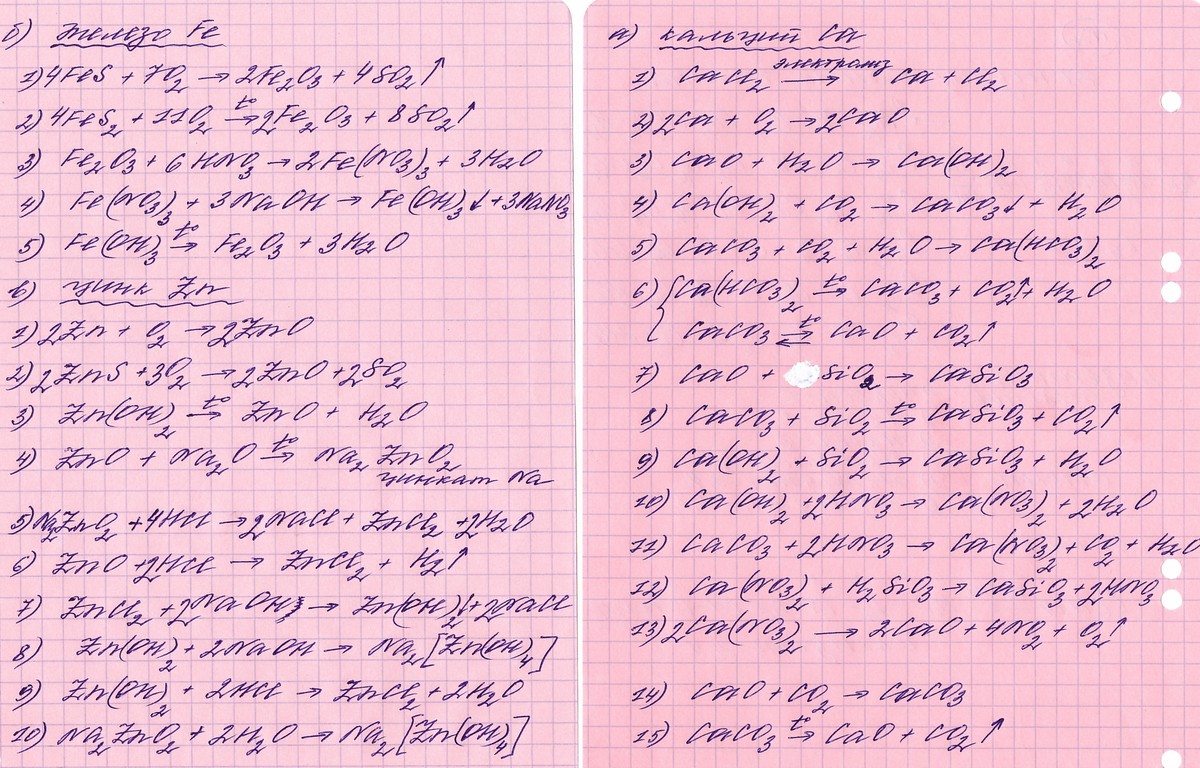 б) железо Fe
1) 4FeS + 7O₂ → 2Fe₂O₃ + 4SO₂↑
2) 4FeS₂ + 11O₂ →t° 2Fe₂O₃ + 8SO₂↑
3) Fe₂O₃ + 6HNO₃ → 2Fe(NO₃)₃ + 3H₂O
4) Fe(NO₃)₃ + 3NaOH → Fe(OH)₃↓ + 3NaNO₃
5) Fe(OH)₃ →t° Fe₂O₃ + 3H₂O
в) цинк Zn
1) 2Zn + O₂ → 2ZnO
2) 2ZnS + 3O₂ → 2ZnO + 2SO₂
3) Zn(OH)₂ →t° ZnO + H₂O
4) ZnO + Na₂O →t° Na₂ZnO₂
цинкат Na
5) Na₂ZnO₂ + 4HCl → 2NaCl + ZnCl₂ + 2H₂O
6) ZnO + 2HCl → ZnCl₂ + H₂↑
7) ZnCl₂ + 2NaOH → Zn(OH)₂↓ + 2NaCl
8) Zn(OH)₂ + 2NaOH → Na₂[Zn(OH)₄]
9) Zn(OH)₂ + 2HCl → ZnCl₂ + 2H₂O
10) Na₂ZnO₂ + 2H₂O → Na₂[Zn(OH)₄]
а) кальций Ca
электролиз
1) CaCl₂ → Ca + Cl₂
2) 2Ca + O₂ → 2CaO
3) CaO + H₂O → Ca(OH)₂
4) Ca(OH)₂ + CO₂ → CaCO₃↓ + H₂O
5) CaCO₃ + CO₂ + H₂O → Ca(HCO₃)₂
6) { Ca(HCO₃)₂ →t° CaCO₃ + CO₂↑ + H₂O
CaCO₃ ⇄t° CaO + CO₂↑
7) CaO + SiO₂ → CaSiO₃
8) CaCO₃ + SiO₂ →t° CaSiO₃ + CO₂↑
9) Ca(OH)₂ + SiO₂ → CaSiO₃ + H₂O
10) Ca(OH)₂ + 2HNO₃ → Ca(NO₃)₂ + 2H₂O
11) CaCO₃ + 2HNO₃ → Ca(NO₃)₂ + CO₂ + H₂O
12) Ca(NO₃)₂ + H₂SiO₃ → CaSiO₃ + 2HNO₃
13) 2Ca(NO₃)₂ → 2CaO + 4NO₂ + O₂↑
14) CaO + CO₂ → CaCO₃
15) CaCO₃ →t° CaO + CO₂↑